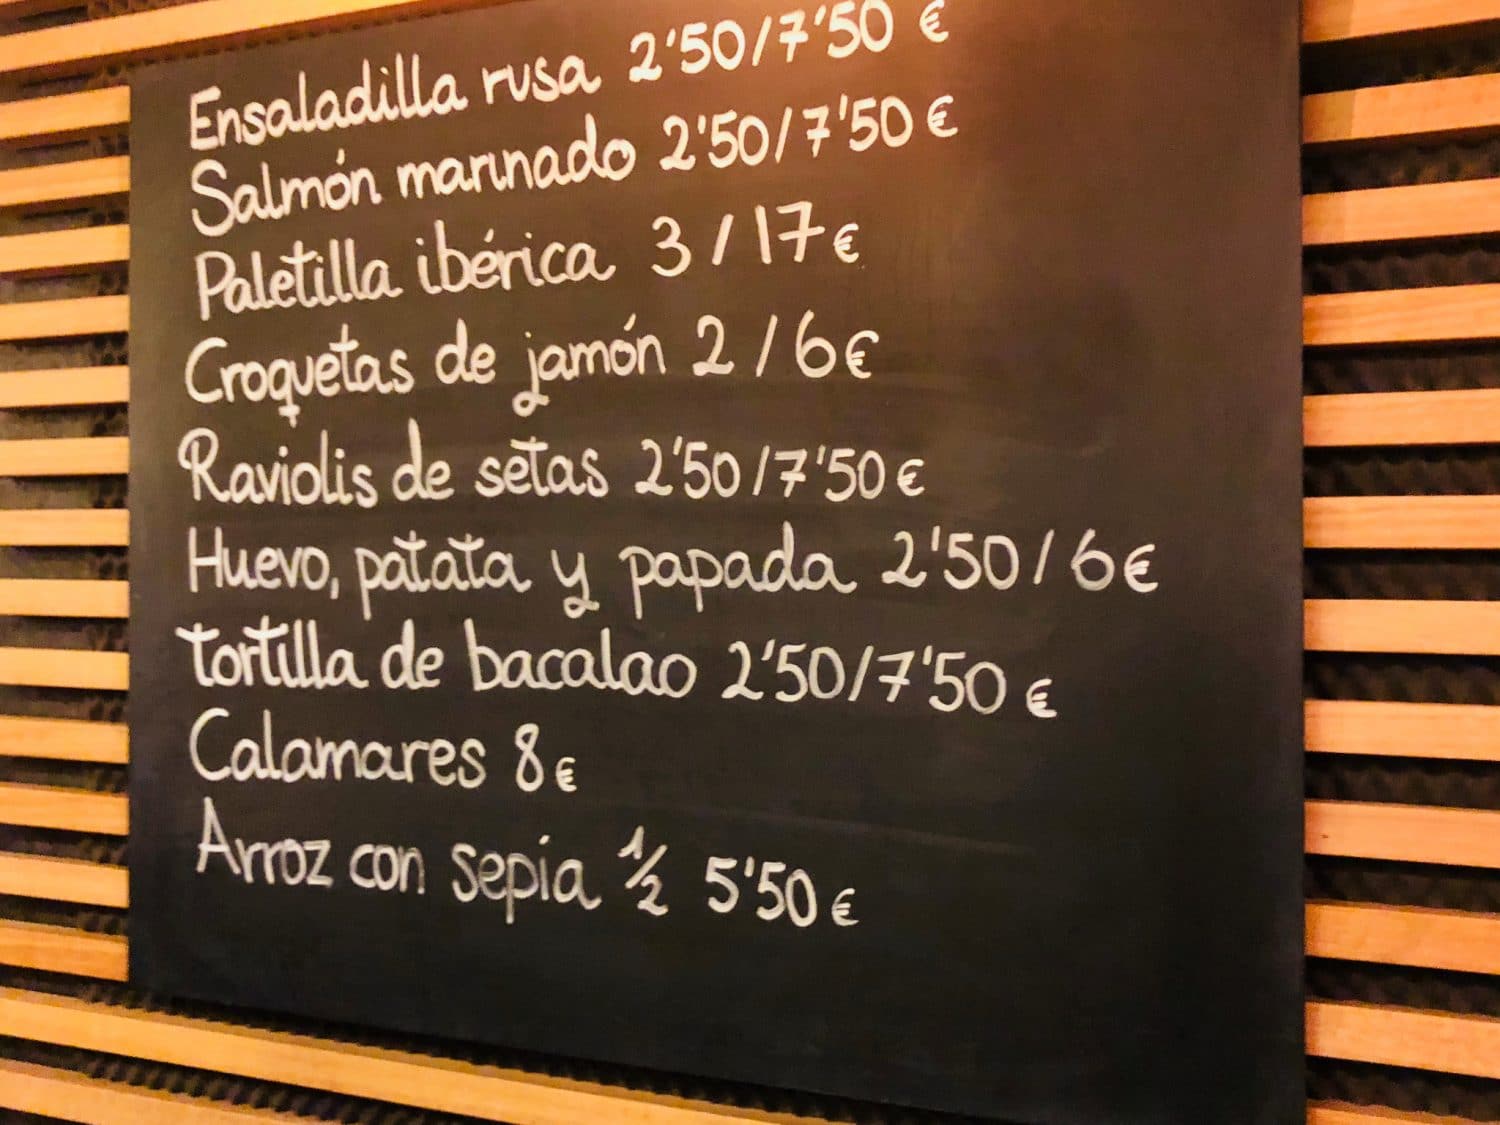 Ensaladilla rusa 2'50/7'50 €
Salmón marinado 2'50/7'50 €
Paletilla ibérica 3/17€
Croquetas de jamón 2/6€
Raviolis de setas 2'50/7'50€
Huevo, patata y papada 2'50/6€
tortilla de bacalao 2'50/7'50 €
Calamares 8€
Arroz con sepia 1/2 5'50€